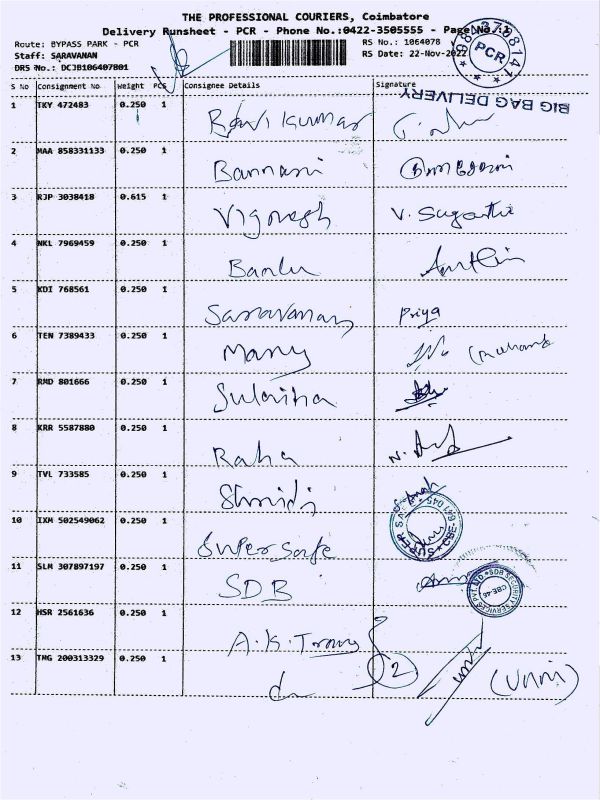 THE PROFESSIONAL COURIERS, Coimbatore
Delivery Runsheet - PCR - Phone No.:0422-3505555 - Page No.:1
Route: BYPASS PARK - PCR RS No.: 1064078
Staff: SARAVANAN RS Date: 22-Nov-2022
DRS No.: DCJB106407801
PCR
BIG BAG DELIVERY
S No Consignment No Weight PCS Consignee Details Signature
1 TKY 472483 0.250 1 Ravi Kumar
2 MAA 858331133 0.250 1 Bannari
3 RJP 3038418 0.615 1 Vignesh V. Suganthi
4 NKL 7969459 0.250 1
5 KDI 768561 0.250 1 Saravanan Priya
6 TEN 7389433 0.250 1 Many
7 RMD 801666 0.250 1
8 KRR 5587880 0.250 1 Raha
9 TVL 733585 0.250 1
10 IXM 502549062 0.250 1 Super Safe
11 SLM 307897197 0.250 1 SDB
SDB SECURITY SERVICES PVT. LTD. CBE-46
12 HSR 2561636 0.250 1 A.K.
13 TMG 200313329 0.250 1 2 (Unni)